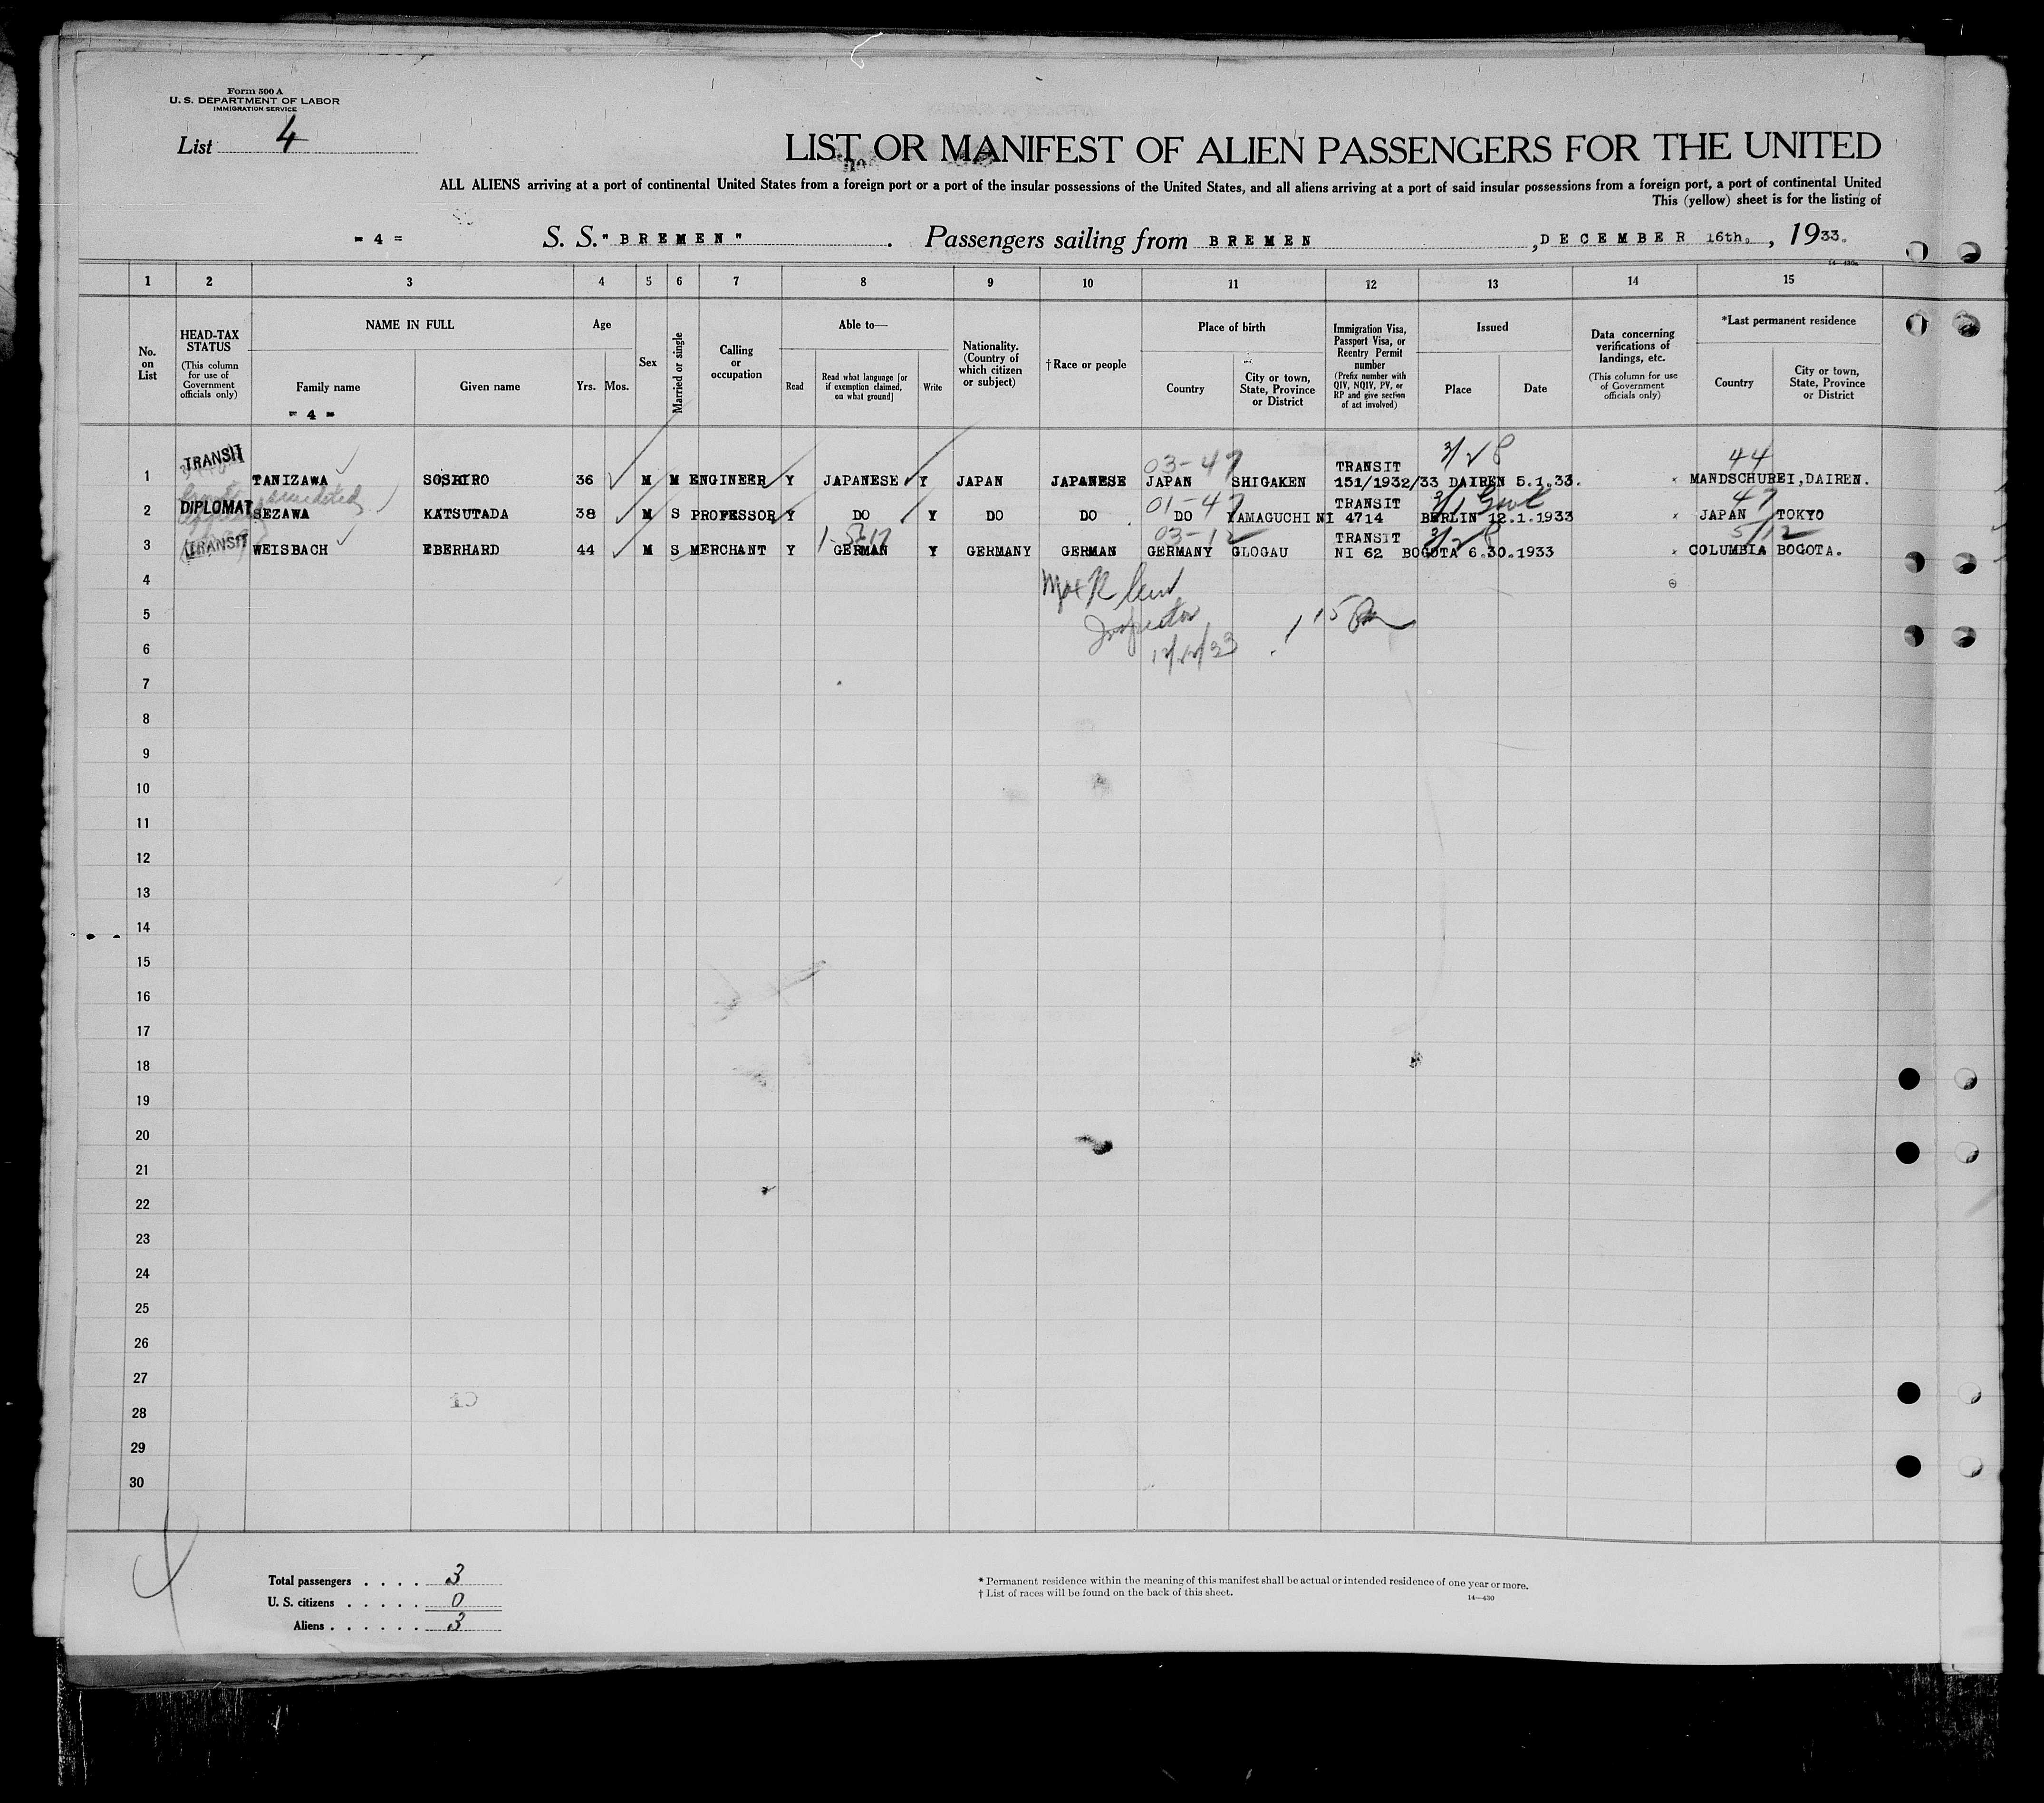 Form 500 A
U. S. DEPARTMENT OF LABOR
IMMIGRATION SERVICE
List 4
LIST OR MANIFEST OF ALIEN PASSENGERS FOR THE UNITED
ALL ALIENS arriving at a port of continental United States from a foreign port or a port of the insular possessions of the United States, and all aliens arriving at a port of said insular possessions from a foreign port, a port of continental United
This (yellow) sheet is for the listing of
= 4 = S. S. "BREMEN" . Passengers sailing from BREMEN , DECEMBER 16th. , 1933.
1 2 3 4 5 6 7 8 9 10 11 12 13 14 15
No. on List
HEAD-TAX STATUS
(This column for use of Government officials only)
NAME IN FULL
Family name
Given name
= 4 =
Age
Yrs. Mos.
Sex
Married or single
Calling or occupation
Able to—
Read
Read what language [or if exemption claimed, on what ground]
Write
Nationality. (Country of which citizen or subject)
†Race or people
Place of birth
Country
City or town, State, Province or District
Immigration Visa, Passport Visa, or Reentry Permit number
(Prefix number with QIV, NQIV, PV, or RP and give section of act involved)
Issued
Place
Date
Data concerning verifications of landings, etc.
(This column for use of Government officials only)
*Last permanent residence
Country
City or town, State, Province or District
TRANSIT 03-47 TRANSIT 3/28 44
1 TANIZAWA SOSHIRO 36 M M ENGINEER Y JAPANESE Y JAPAN JAPANESE JAPAN SHIGAKEN 151/1932/33 DAIREN 5.1.33. x MANDSCHUREI, DAIREN.
01-47 TRANSIT 47
2 DIPLOMAT SEZAWA KATSUTADA 38 M S PROFESSOR Y DO Y DO DO DO YAMAGUCHI NI 4714 BERLIN 12.1.1933 x JAPAN TOKYO
03-12 TRANSIT 5/12
3 TRANSIT WEISBACH EBERHARD 44 M S MERCHANT Y GERMAN Y GERMANY GERMAN GERMANY GLOGAU NI 62 BOGOTA 6.30.1933 x COLUMBIA BOGOTA.
4
5
Inspector
6
7
8
9
10
11
12
13
14
15
16
17
18
19
20
21
22
23
24
25
26
27
28
29
30
Total passengers . . . . 3
U. S. citizens . . . . . 0
Aliens . . . . . . 3
* Permanent residence within the meaning of this manifest shall be actual or intended residence of one year or more.
† List of races will be found on the back of this sheet.
14—430